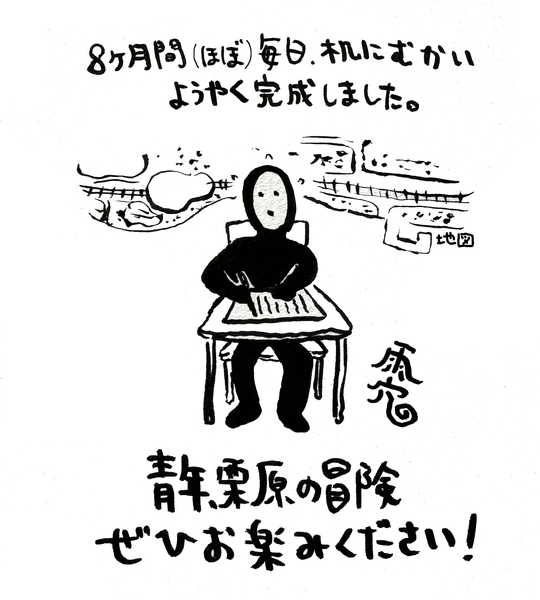 8ヶ月間(ほぼ)毎日、机にむかい
ようやく完成しました。
地図
雨穴
青年、栗原の冒険
ぜひお楽みください！